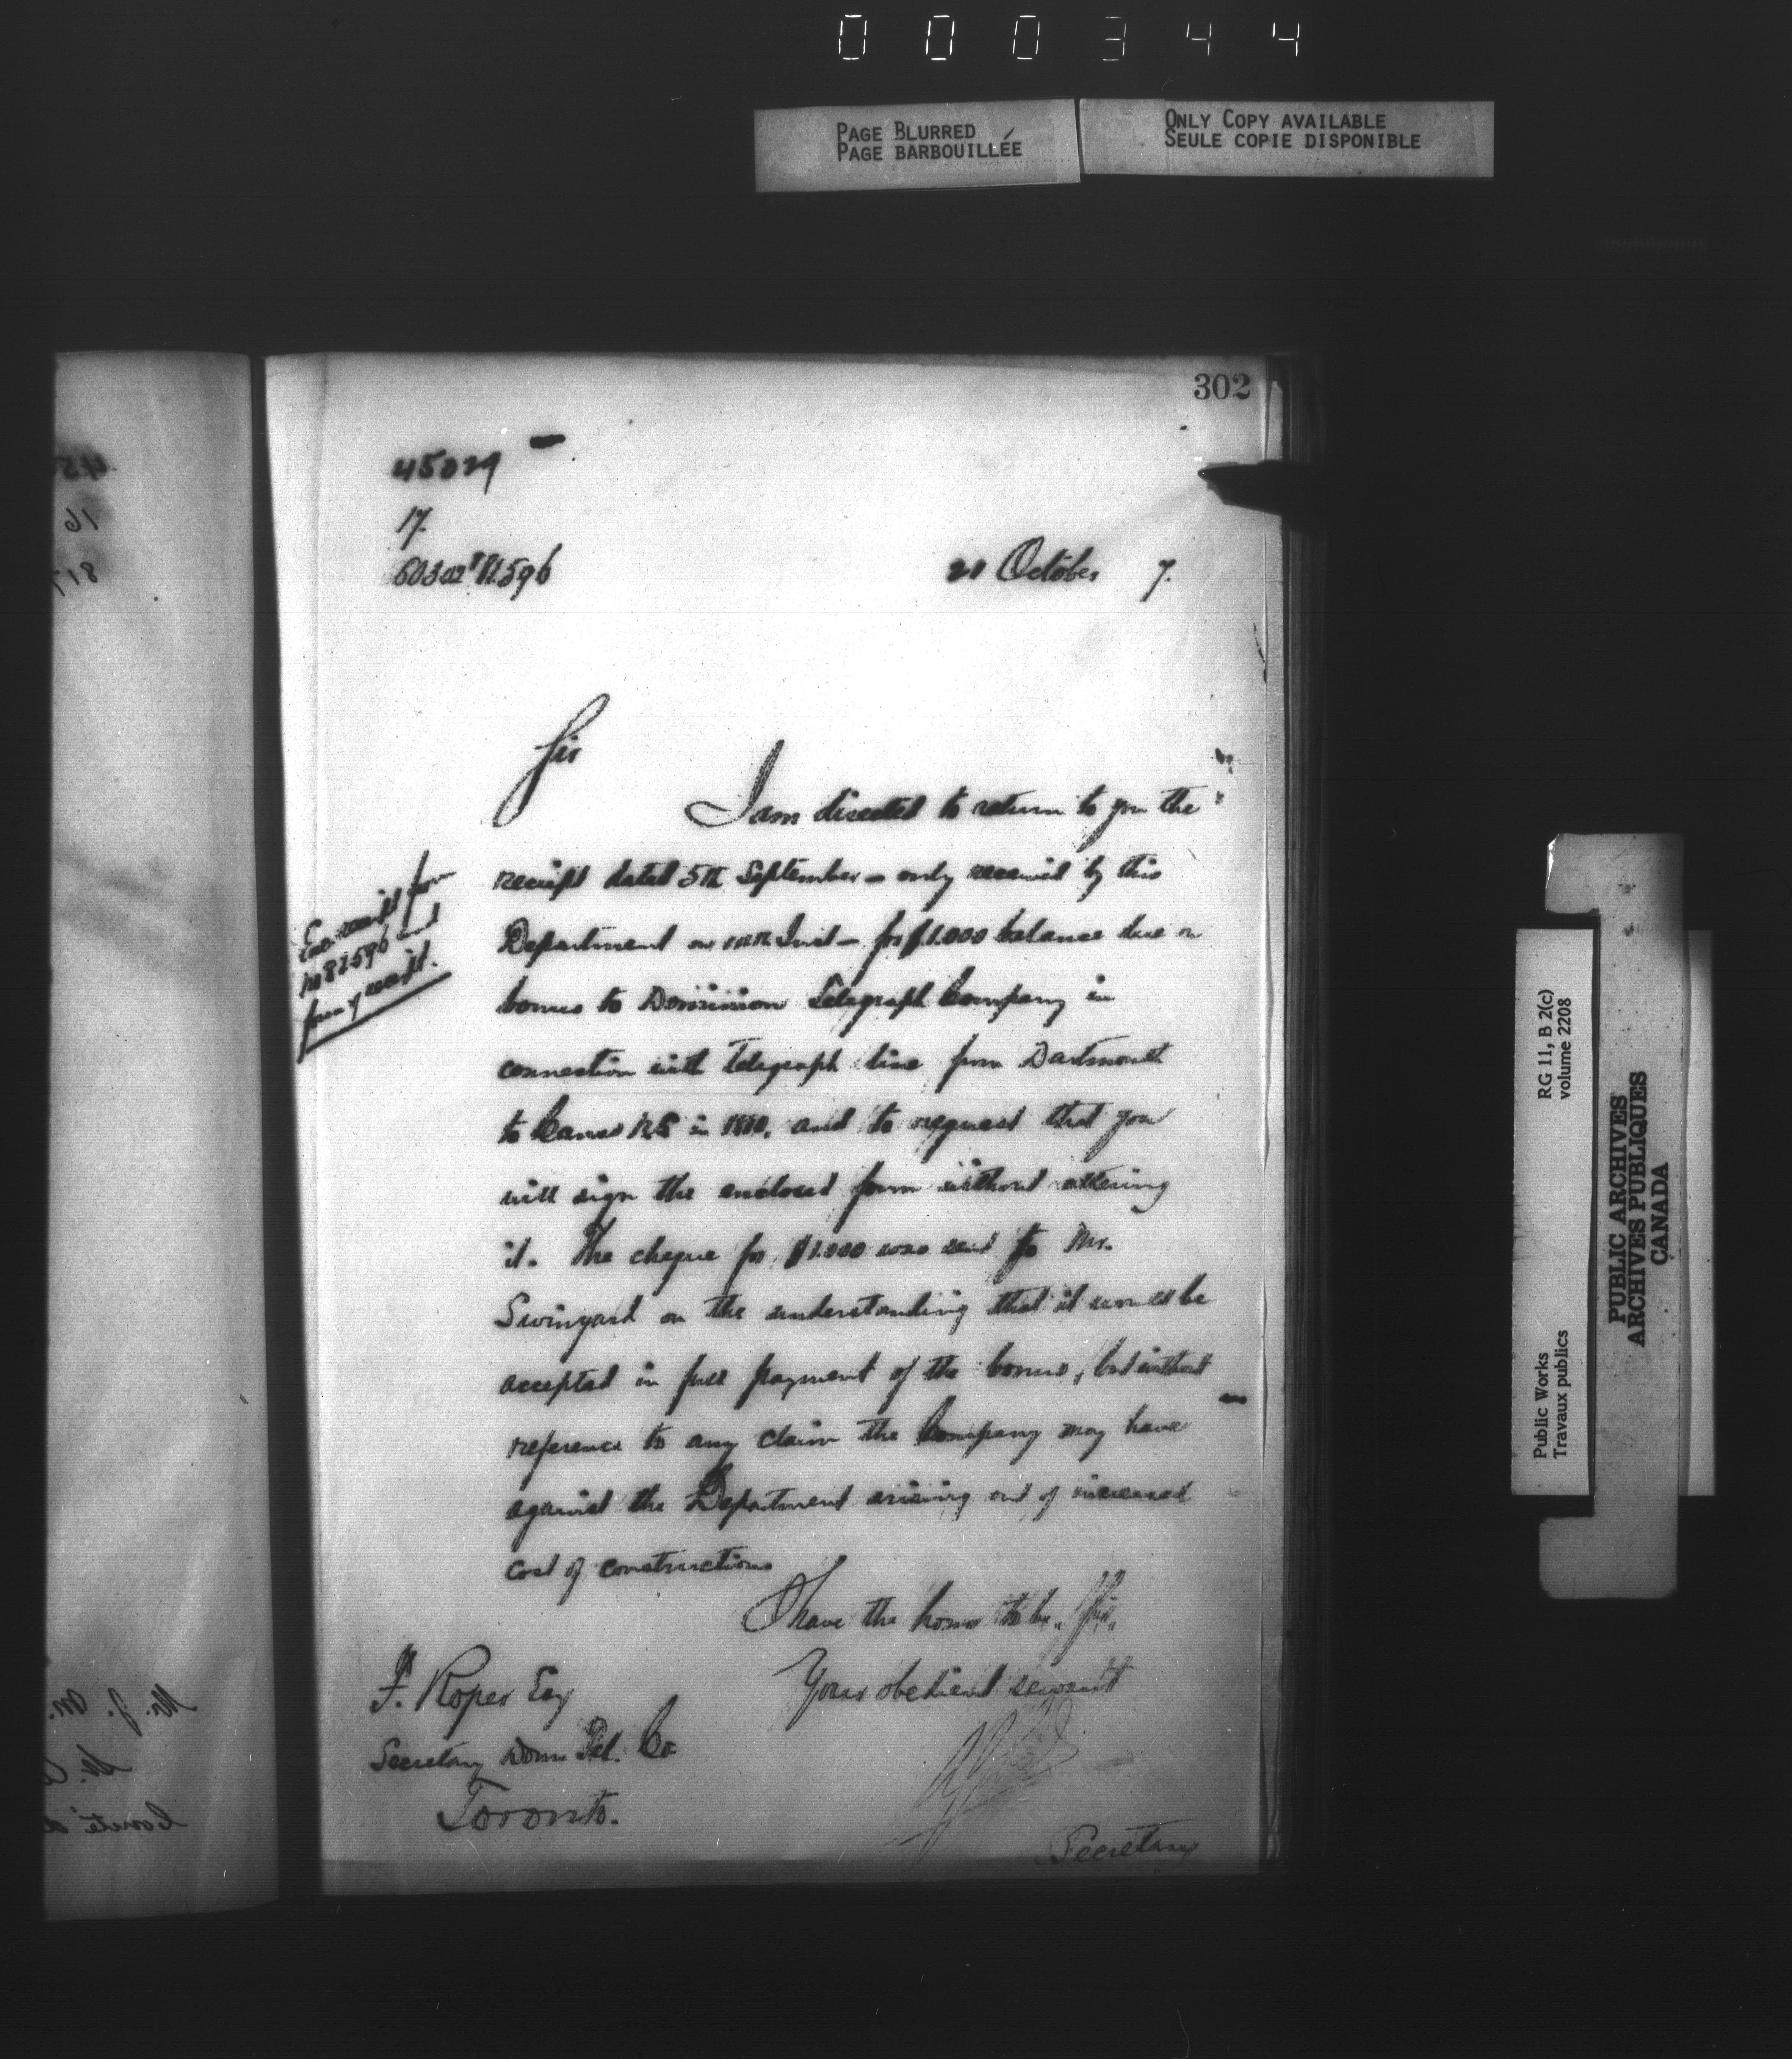 000344
PAGE BLURRED
PAGE BARBOUILLÉE
ONLY COPY AVAILABLE
SEULE COPIE DISPONIBLE
302
45029
17.
October 7.
Sir
I am directed to return to you the
receipt dated 5th September - only received by this
Department on Inst - for $1.000 balance due on
bonus to Dominion Telegraph Company in
connection with Telegraph line from Dartmouth
to Canso N.S in 1880. and to request that you
will sign the enclosed form without altering
it. The cheque for $1.000 was sent to Mr.
Swinyard on the understanding that it would be
accepted in full payment of the bonus, but without
reference to any claim the Company may have
against the Department arising out of increased
cost of construction
I have the honor to be, Sir,
Your obedient servant
Secretary
F. Roper Esq
Secretary Domn Tel. Co.
Toronto.
receipt for
No 81596 and
form of receipt.
Public Works
Travaux publics
RG 11, B 2(c)
volume 2208
PUBLIC ARCHIVES
ARCHIVES PUBLIQUES
CANADA